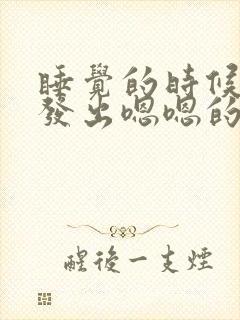 睡覺的時候
發出嗯嗯的
醒後一支煙